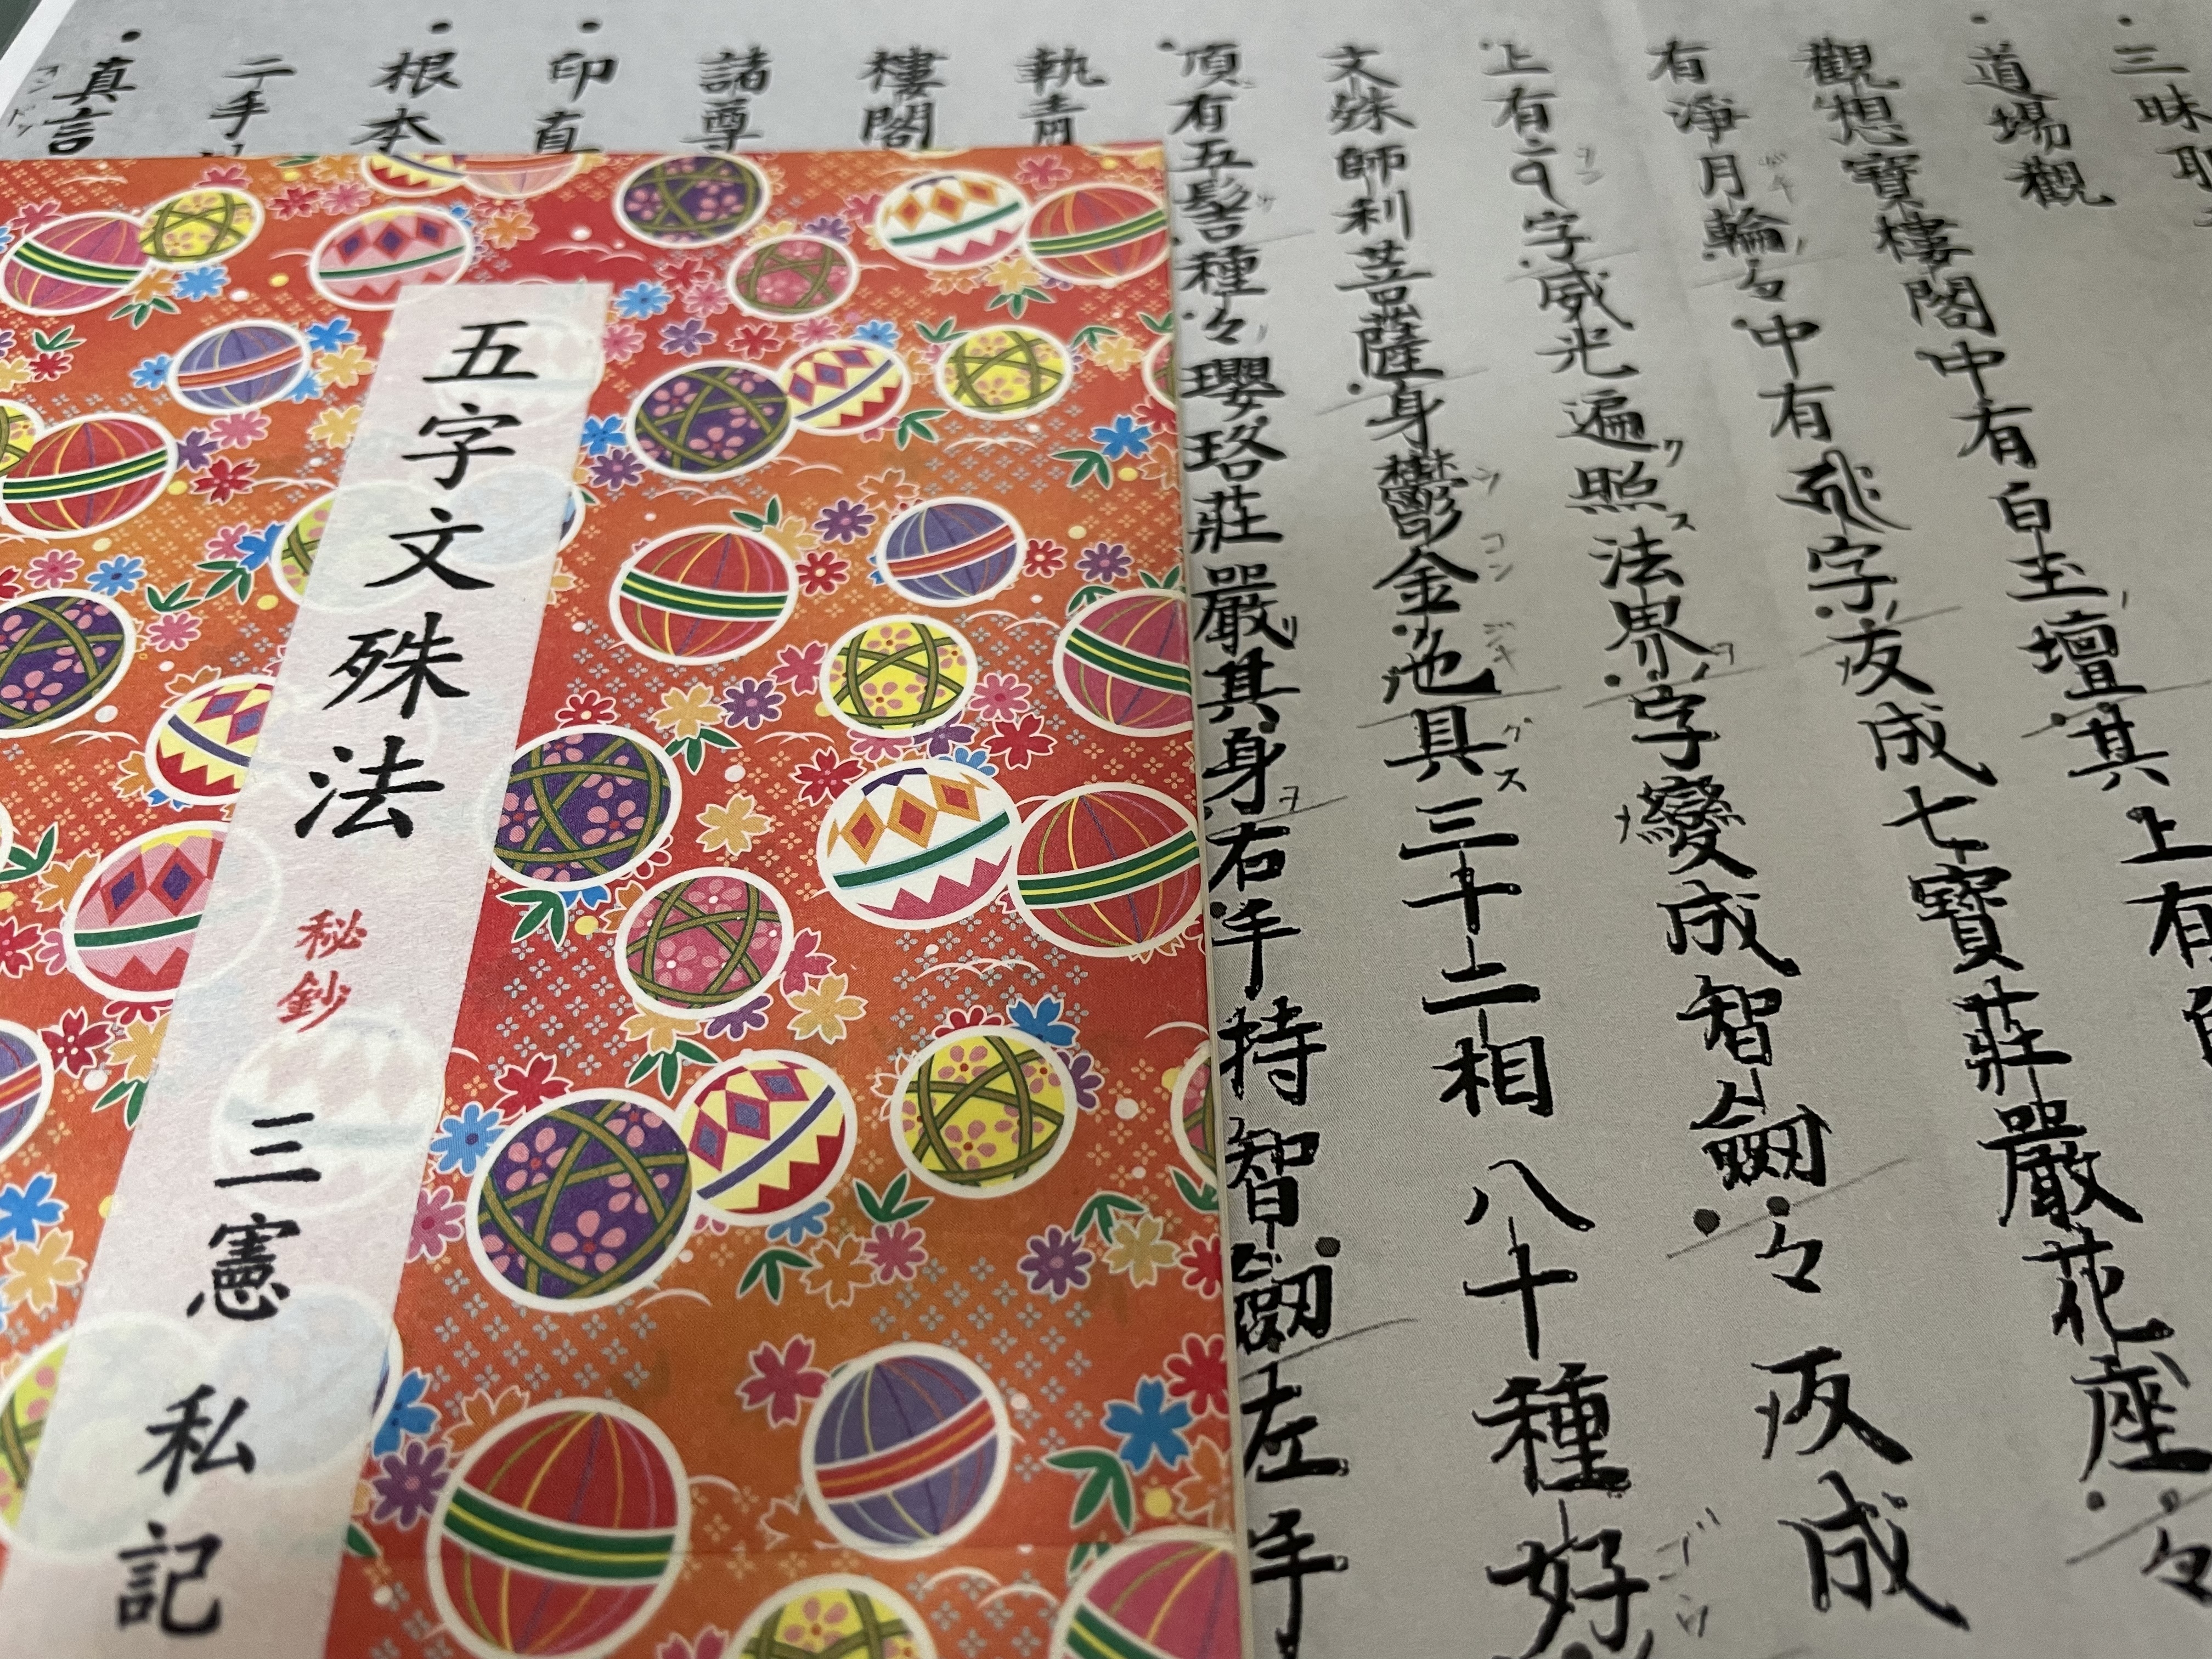 三昧
道場觀
觀想寶樓閣中有白玉壇其上有
有淨月輪々中有字反成七寶莊嚴花座々
上有字威光遍照法界字變成智劔々反成
文殊師利菩薩身鬱金色具三十二相八十種好
頂有五髻種々瓔珞莊嚴其身右手持智劔左手
執青
樓閣
諸尊
印真
根本
二手
真言
五字文殊法 秘鈔 三憲 私記